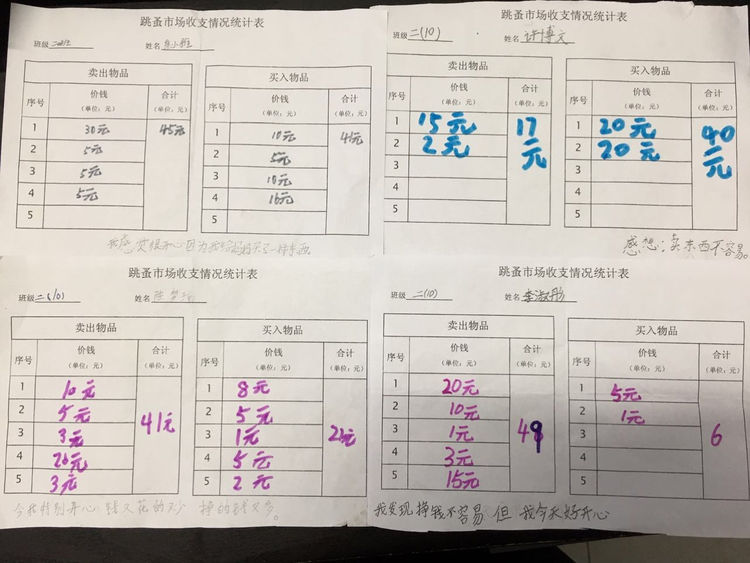 跳蚤市场收支情况统计表
班级 姓名
卖出物品
序号 价钱（单位：元） 合计（单位：元）
1 30元 45元
2 5元
3 5元
4 5元
5
买入物品
序号 价钱（单位：元） 合计（单位：元）
1 10元 41元
2 5元
3 10元
4 16元
5
跳蚤市场收支情况统计表
班级 二(10) 姓名 许博文
卖出物品
序号 价钱（单位：元） 合计（单位：元）
1 15元 17元
2 2元
3
4
5
买入物品
序号 价钱（单位：元） 合计（单位：元）
1 20元 40元
2 20元
3
4
5
感想：卖东西不容易。
跳蚤市场收支情况统计表
班级 二(10) 姓名
卖出物品
序号 价钱（单位：元） 合计（单位：元）
1 10元 41元
2 5元
3 3元
4 20元
5 3元
买入物品
序号 价钱（单位：元） 合计（单位：元）
1 8元 21元
2 5元
3 1元
4 5元
5 2元
今天特别开心 钱又花的少 挣的钱又多。
跳蚤市场收支情况统计表
班级 二(10) 姓名 李淑彤
卖出物品
序号 价钱（单位：元） 合计（单位：元）
1 20元 49
2 10元
3 1元
4 3元
5 15元
买入物品
序号 价钱（单位：元） 合计（单位：元）
1 5元 6
2 1元
3
4
5
我发现挣钱不容易 但 我今天好开心